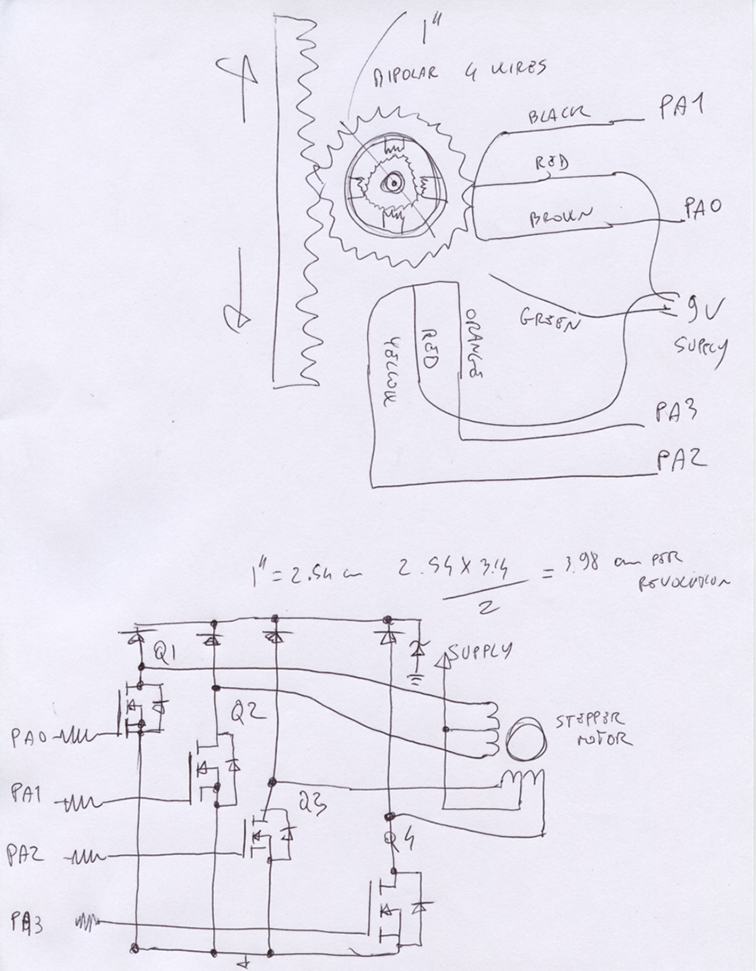 1"
BIPOLAR 4 WIRES
BLACK PA1
RED
BROWN PA0
GREEN 9V
SUPPLY
YELLOW RED ORANGE
PA3
PA2
1" = 2.54 cm 2.54 X 3.14 / 2 = 3.98 cm PER
REVOLUTION
Q1 SUPPLY
Q2 STEPPER
MOTOR
PA0
PA1
Q3
Q4
PA2
PA3